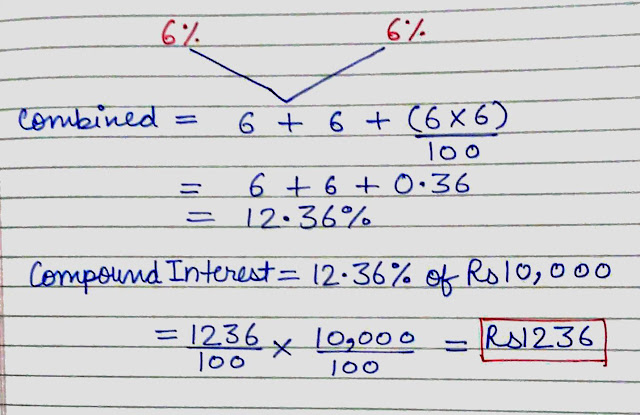 6% 6%
Combined = 6 + 6 + (6×6)/100
= 6 + 6 + 0.36
= 12.36%
Compound Interest = 12.36% of Rs10,000
= 1236/100 × 10,000/100 = Rs1236